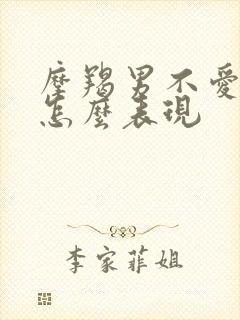 摩羯男不愛
怎麼表現
李家菲姐